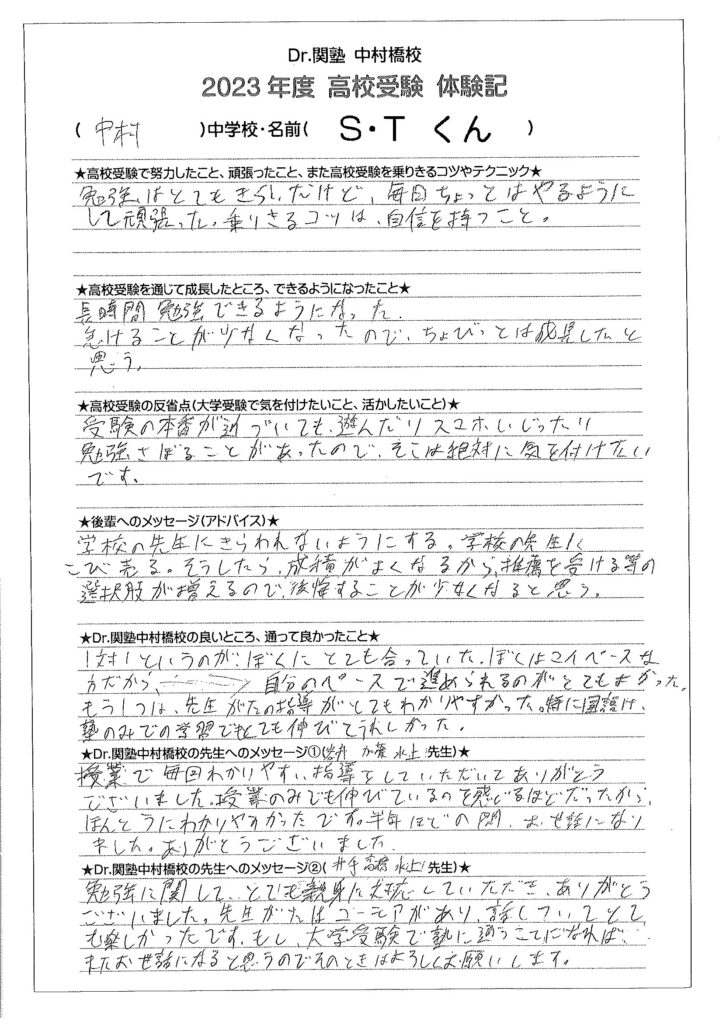 Dr.関塾 中村橋校
2023年度 高校受験 体験記
( 中村 )中学校・名前( S・T くん )
★高校受験で努力したこと、頑張ったこと、また高校受験を乗りきるコツやテクニック★
勉強はとてもきらいだけど、毎日ちょっとはやるように
して頑張った。乗りきるコツは、自信を持つこと。
★高校受験を通じて成長したところ、できるようになったこと★
長時間勉強できるようになった。
怠けることが少なくなったので、ちょびっとは成長したと
思う。
★高校受験の反省点(大学受験で気を付けたいこと、活かしたいこと)★
受験の本番が近づいても、遊んだりスマホいじったり
勉強さぼることがあったので、そこは絶対に気を付けたい
です。
★後輩へのメッセージ(アドバイス)★
学校の先生にきらわれないようにする。学校の先生に
こび売る。そうしたら、成績がよくなるから、推薦を受ける等の
選択肢が増えるので、後悔することが少なくなると思う。
★Dr.関塾中村橋校の良いところ、通って良かったこと★
1対1というのが、ぼくにとても合っていた。ぼくはマイペースな
方だから、自分のペースで進められるのがとてもよかった。
もう1つは、先生がたの指導がとてもわかりやすかった。特に国語は、
塾のみでの学習でもとても伸びてうれしかった。
★Dr.関塾中村橋校の先生へのメッセージ①(岩井 加賀 水上 先生)★
授業で毎回わかりやすい指導をしていただいてありがとう
ございました。授業のみでも伸びているのを感じるほどだったから、
ほんとうにわかりやすかったです。半年ほどの間、お世話になり
ました。ありがとうございました。
★Dr.関塾中村橋校の先生へのメッセージ②(井手 高橋 水上 先生)★
勉強に関して、とても親身に対応していただき、ありがとう
ございました。先生がたはユーモアがあり、話していてとて
も楽しかったです。もし、大学受験で塾に通うことになれば、
またお世話になると思うのでそのときはよろしくお願いします。